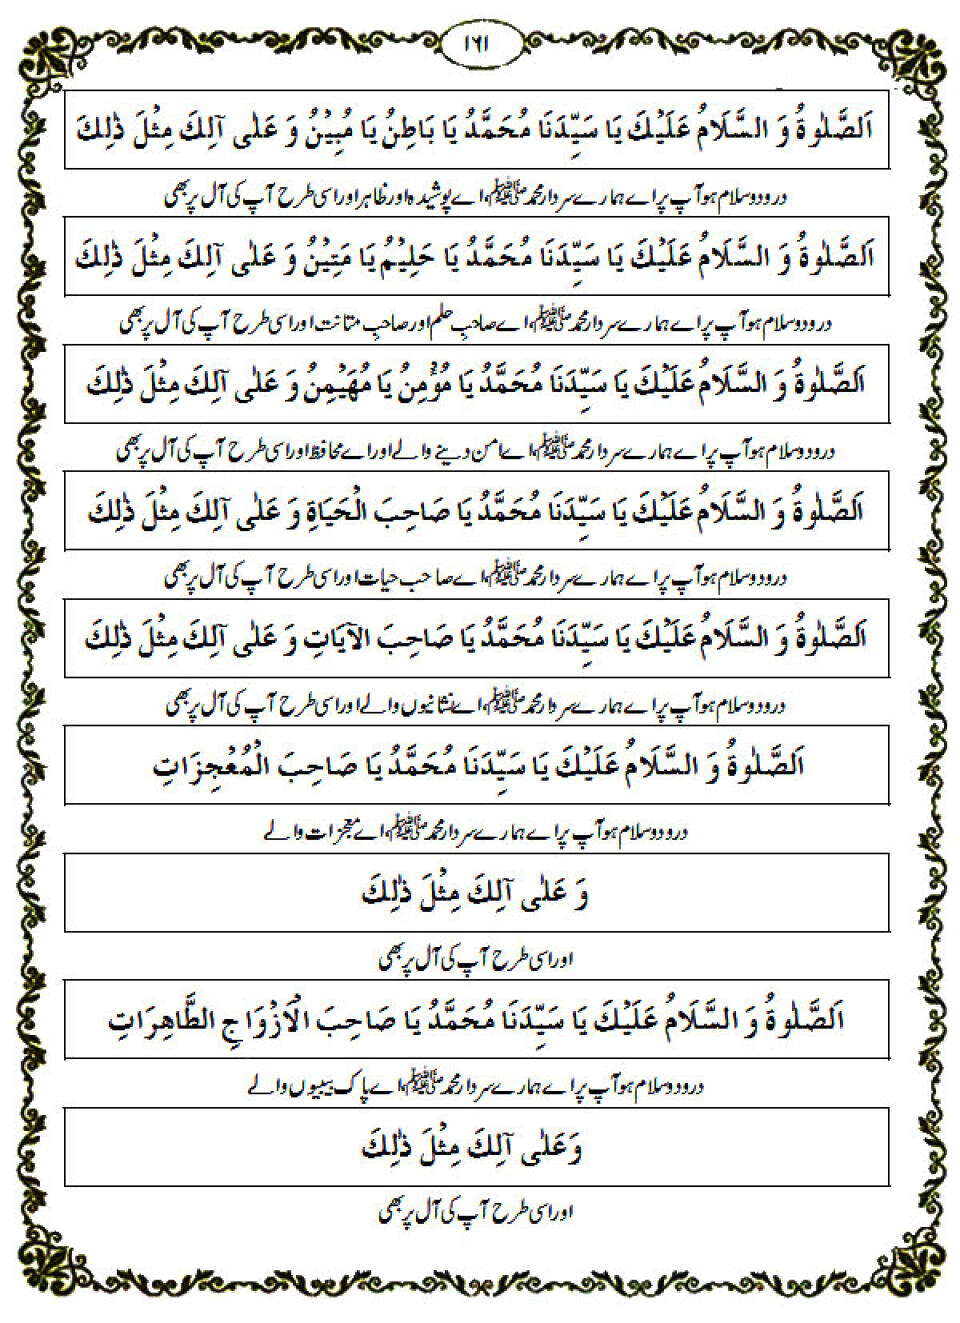 ١٦١
اَلصَّلٰوةُ وَ السَّلَامُ عَلَیْكَ یَا سَیِّدَنَا مُحَمَّدُ یَا بَاطِنُ یَا مُبِیْنُ وَ عَلٰی آلِكَ مِثْلَ ذٰلِكَ
درود و سلام ہو آپ پر اے ہمارے سردار محمد ﷺ، اے پوشیدہ اور ظاہر اور اسی طرح آپ کی آل پر بھی
اَلصَّلٰوةُ وَ السَّلَامُ عَلَیْكَ یَا سَیِّدَنَا مُحَمَّدُ یَا حَلِیْمُ یَا مَتِیْنُ وَ عَلٰی آلِكَ مِثْلَ ذٰلِكَ
درود و سلام ہو آپ پر اے ہمارے سردار محمد ﷺ، اے صاحبِ حلم اور صاحبِ متانت اور اسی طرح آپ کی آل پر بھی
اَلصَّلٰوةُ وَ السَّلَامُ عَلَیْكَ یَا سَیِّدَنَا مُحَمَّدُ یَا مُؤْمِنُ یَا مُهَیْمِنُ وَ عَلٰی آلِكَ مِثْلَ ذٰلِكَ
درود و سلام ہو آپ پر اے ہمارے سردار محمد ﷺ، اے امن دینے والے اور اے محافظ اور اسی طرح آپ کی آل پر بھی
اَلصَّلٰوةُ وَ السَّلَامُ عَلَیْكَ یَا سَیِّدَنَا مُحَمَّدُ یَا صَاحِبَ الْحَیَاةِ وَ عَلٰی آلِكَ مِثْلَ ذٰلِكَ
درود و سلام ہو آپ پر اے ہمارے سردار محمد ﷺ، اے صاحب حیات اور اسی طرح آپ کی آل پر بھی
اَلصَّلٰوةُ وَ السَّلَامُ عَلَیْكَ یَا سَیِّدَنَا مُحَمَّدُ یَا صَاحِبَ الآیَاتِ وَ عَلٰی آلِكَ مِثْلَ ذٰلِكَ
درود و سلام ہو آپ پر اے ہمارے سردار محمد ﷺ، اے نشانیوں والے اور اسی طرح آپ کی آل پر بھی
اَلصَّلٰوةُ وَ السَّلَامُ عَلَیْكَ یَا سَیِّدَنَا مُحَمَّدُ یَا صَاحِبَ الْمُعْجِزَاتِ
درود و سلام ہو آپ پر اے ہمارے سردار محمد ﷺ، اے معجزات والے
وَ عَلٰی آلِكَ مِثْلَ ذٰلِكَ
اور اسی طرح آپ کی آل پر بھی
اَلصَّلٰوةُ وَ السَّلَامُ عَلَیْكَ یَا سَیِّدَنَا مُحَمَّدُ یَا صَاحِبَ الْاَزْوَاجِ الطَّاهِرَاتِ
درود و سلام ہو آپ پر اے ہمارے سردار محمد ﷺ، اے پاک بیبیوں والے
وَعَلٰی آلِكَ مِثْلَ ذٰلِكَ
اور اسی طرح آپ کی آل پر بھی